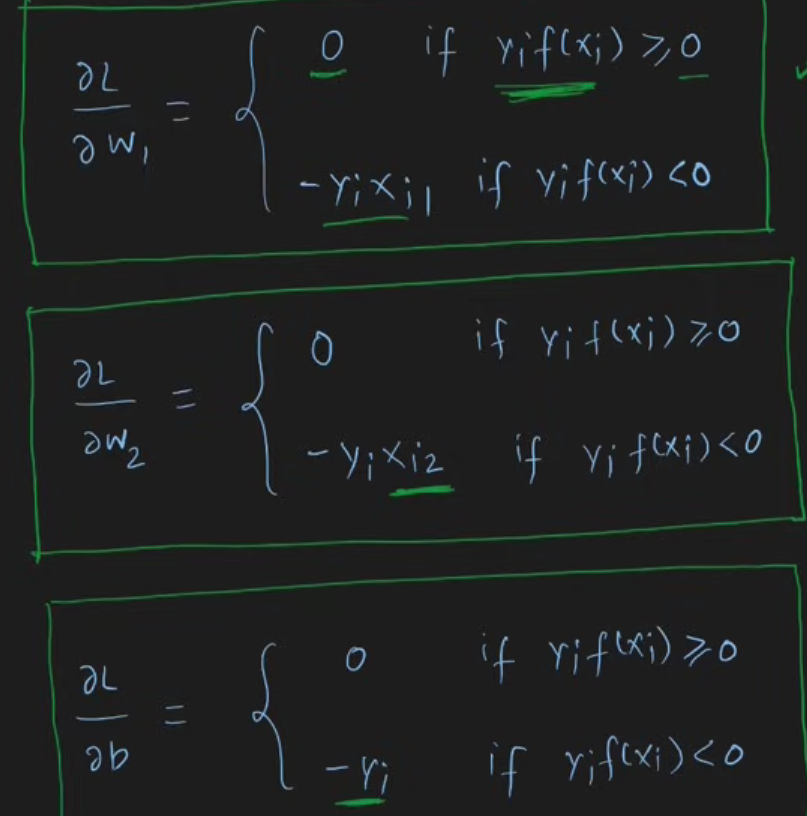 ∂L/∂w₁ = { 0 if yᵢf(xᵢ) ≥ 0
-yᵢxᵢ₁ if yᵢf(xᵢ) < 0
∂L/∂w₂ = { 0 if yᵢf(xᵢ) ≥ 0
-yᵢxᵢ₂ if yᵢf(xᵢ) < 0
∂L/∂b = { 0 if yᵢf(xᵢ) ≥ 0
-yᵢ if yᵢf(xᵢ) < 0